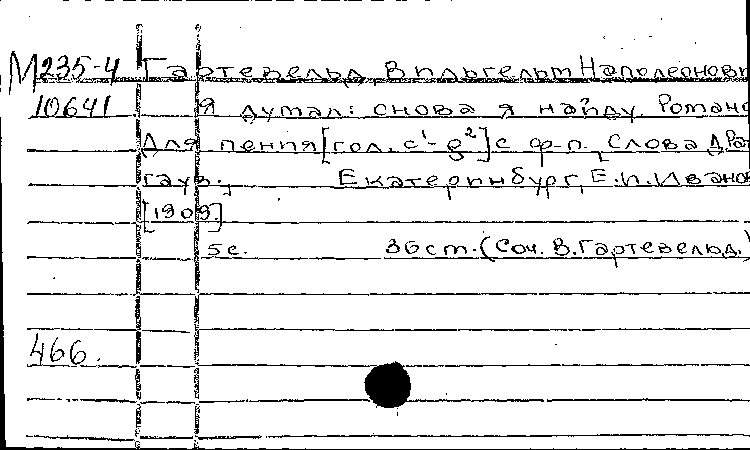 М235-4 Гартевельд, Вильгельм Наполеонови
10641 Я думал: снова я найду. Романс
Для пения [гол. c¹-g²] с ф-п. Слова Д. Рат
гауз.; Екатеринбург, Е.и.Иванов
[1909.]
5 с. 36 cm. (Соч. В. Гартевельд.)
466.